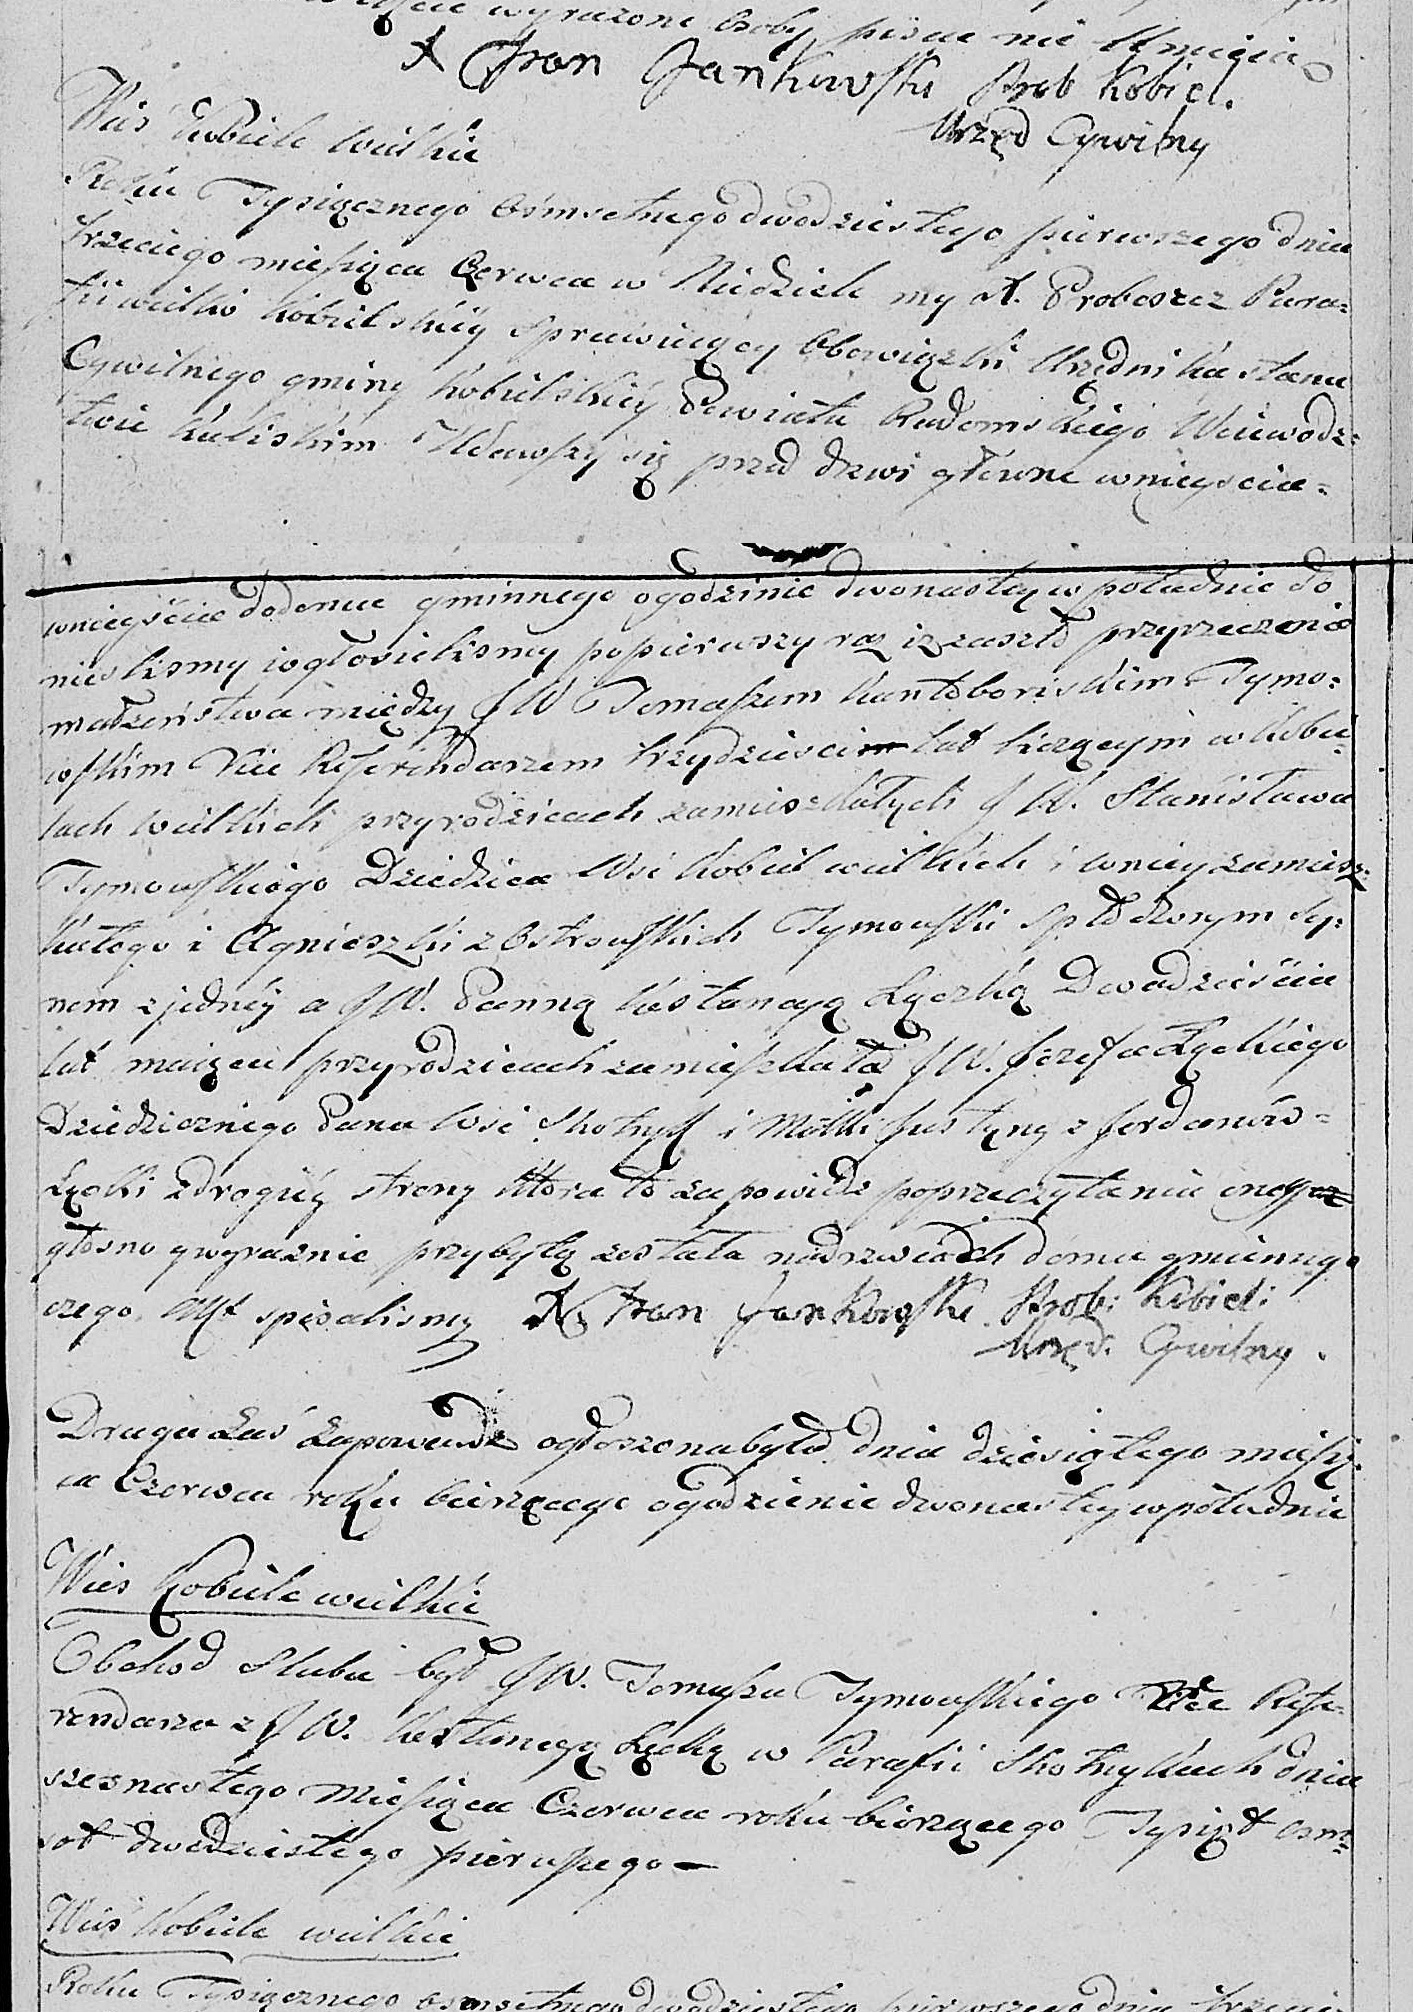 wyrażone Osoby pisać nie Umieią
X Fran Jankowski Prob Kobiel.
Urzęd Cywilny
Wieś Kobiele wielkie
Roku Tysiącznego Ośmsetnego dwódziestego pierwszego dnia
trzeciego miesiąca Czerwca w Niedziele my X. Proboszcz Para=
fii wielko Kobielskiéy Sprawuiący Obowiązki Urzędnika stanu
Cywilnego gminy Kobielskiéy Powiatu Radomskiego Woiewodz=
twie Kaliskim Udawszy się przed drzwi główne wnieyscia=
wnieyścia do domu gminnego o godzinie dwonastey w południe do
nieslismy i ogłosielismy po pierwszy raz iż zaszło przyrzeczenie
małżeństwa między JW Tomaszem Kantoboriskim Tymo=
wskim Vice Referendarzem trzydzieści lat liczącym w Kobie=
lach wielkich przy rodzicach zamieszkałych J W. Stanisława
Tymowskiego Dziedzica Wsi Kobiel wielkich i w niey zamiesz=
kałego i Agnieszki z Ostrowskich Tymowski Spłodzonym Sy=
nem z jednéy a J W. Panną Kostancyą Łącką Dwadzieścia
lat maiącą przy rodzicach zamieszkałą J W. Jozefa Łąckiego
Dziedzicznego Pana Wsi Skotnyk i Matki Justyny z Jordanów=
Łącki z drogiéy strony która to zapowiedz po przeczytaniu oney
głosno y wyraznie przybytą została na drzwiach domu gminnego
czego Akt spisalismy X. Fran Jankowski Prob: Kobiel:
Urzęd. Cywilny.
Druga Zaś Zapowiedz ogłoszona była dnia dziesiątego miesią=
ca Czerwca roku bierzącego o godzienie dwonastey w południe
Wies Kobiele wielkie
Obchod Slubu był J W. Tomasza Tymowskiego Vice Refe=
rendarza z J W. Kostancyą Łącką w Parafii Skotnykach dnia
szesnastego Miesiąca Czerwca roku bierzącego Tysiąt osm=
set dwódziestego pierwszego —
Wieś Kobiele wielkie
Roku Tysiącznego osmsetnego dwódziestego pierwszego dnia trzecie